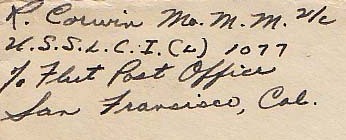 R. Corwin Mo. M. M. 2/c
U. S. S. L. C. I. (L) 1077
℅ Fleet Post Office
San Francisco, Cal.